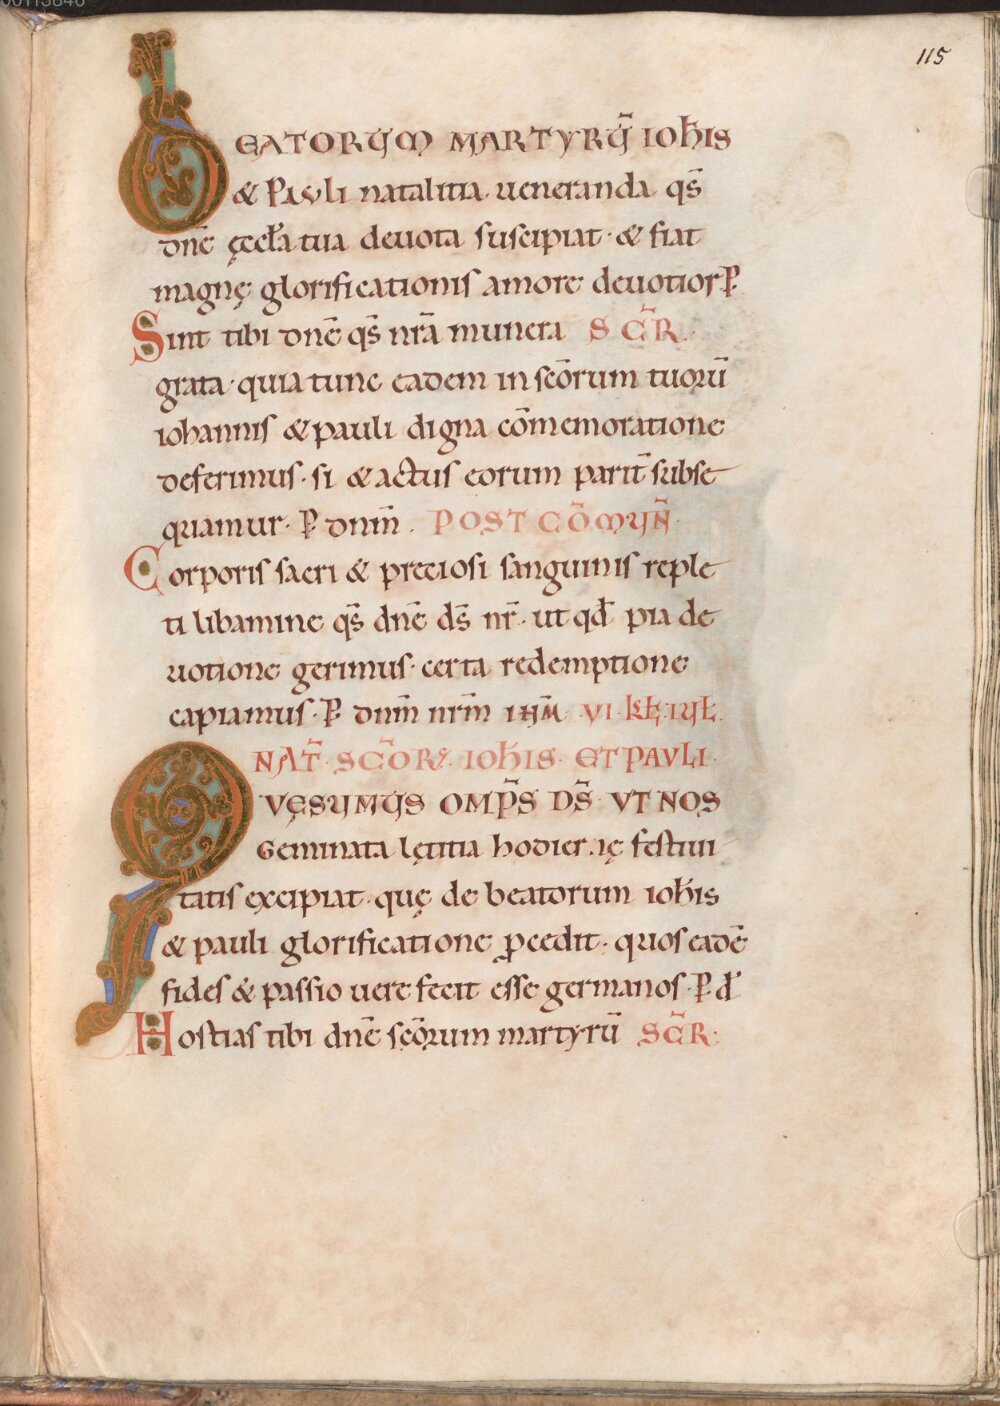 115
BEATORUM MARTYRU̅ IOH̅IS
& PAVLI natalitia ueneranda qs̅
dn̅e ęccl̅a tua deuota suscipiat · & fiat
magnę glorificationis amore deuotior P̅
Sint tibi dn̅e qs̅ nr̅a munera SCR̅.
grata · quia tunc eadem in sc̅orum tuoru̅
iohannis & pauli digna co̅memoratione
deferimus · si & actus eorum parit̅ subse
quamur · P̅ dnm̅. POST CO̅MUN̅.
Corporis sacri & preciosi sanguinis reple
ti libamine qs̅ dn̅e ds̅ nr̅ · ut qd̅ pia de
uotione gerimus · certa redemptione
capiamus · P̅ dnm̅ nrm̅ ihm̅ VI · KL̅ · IUL̅.
NAT̅ · SC̅OR̅ · IOH̅IS · ET PAVLI ·
QVĘSUMUS OMP̅S DS̅ VT NOS
Geminata lętitia hodiernę festiui
tatis excipiat · quę de beatorum ioh̅is
& pauli glorificatione p̱cedit · quos eade̅
fides & passio uere fecit esse germanos · P̅ d̅
Hostias tibi dn̅e sc̅orum martyru̅ SCR̅.